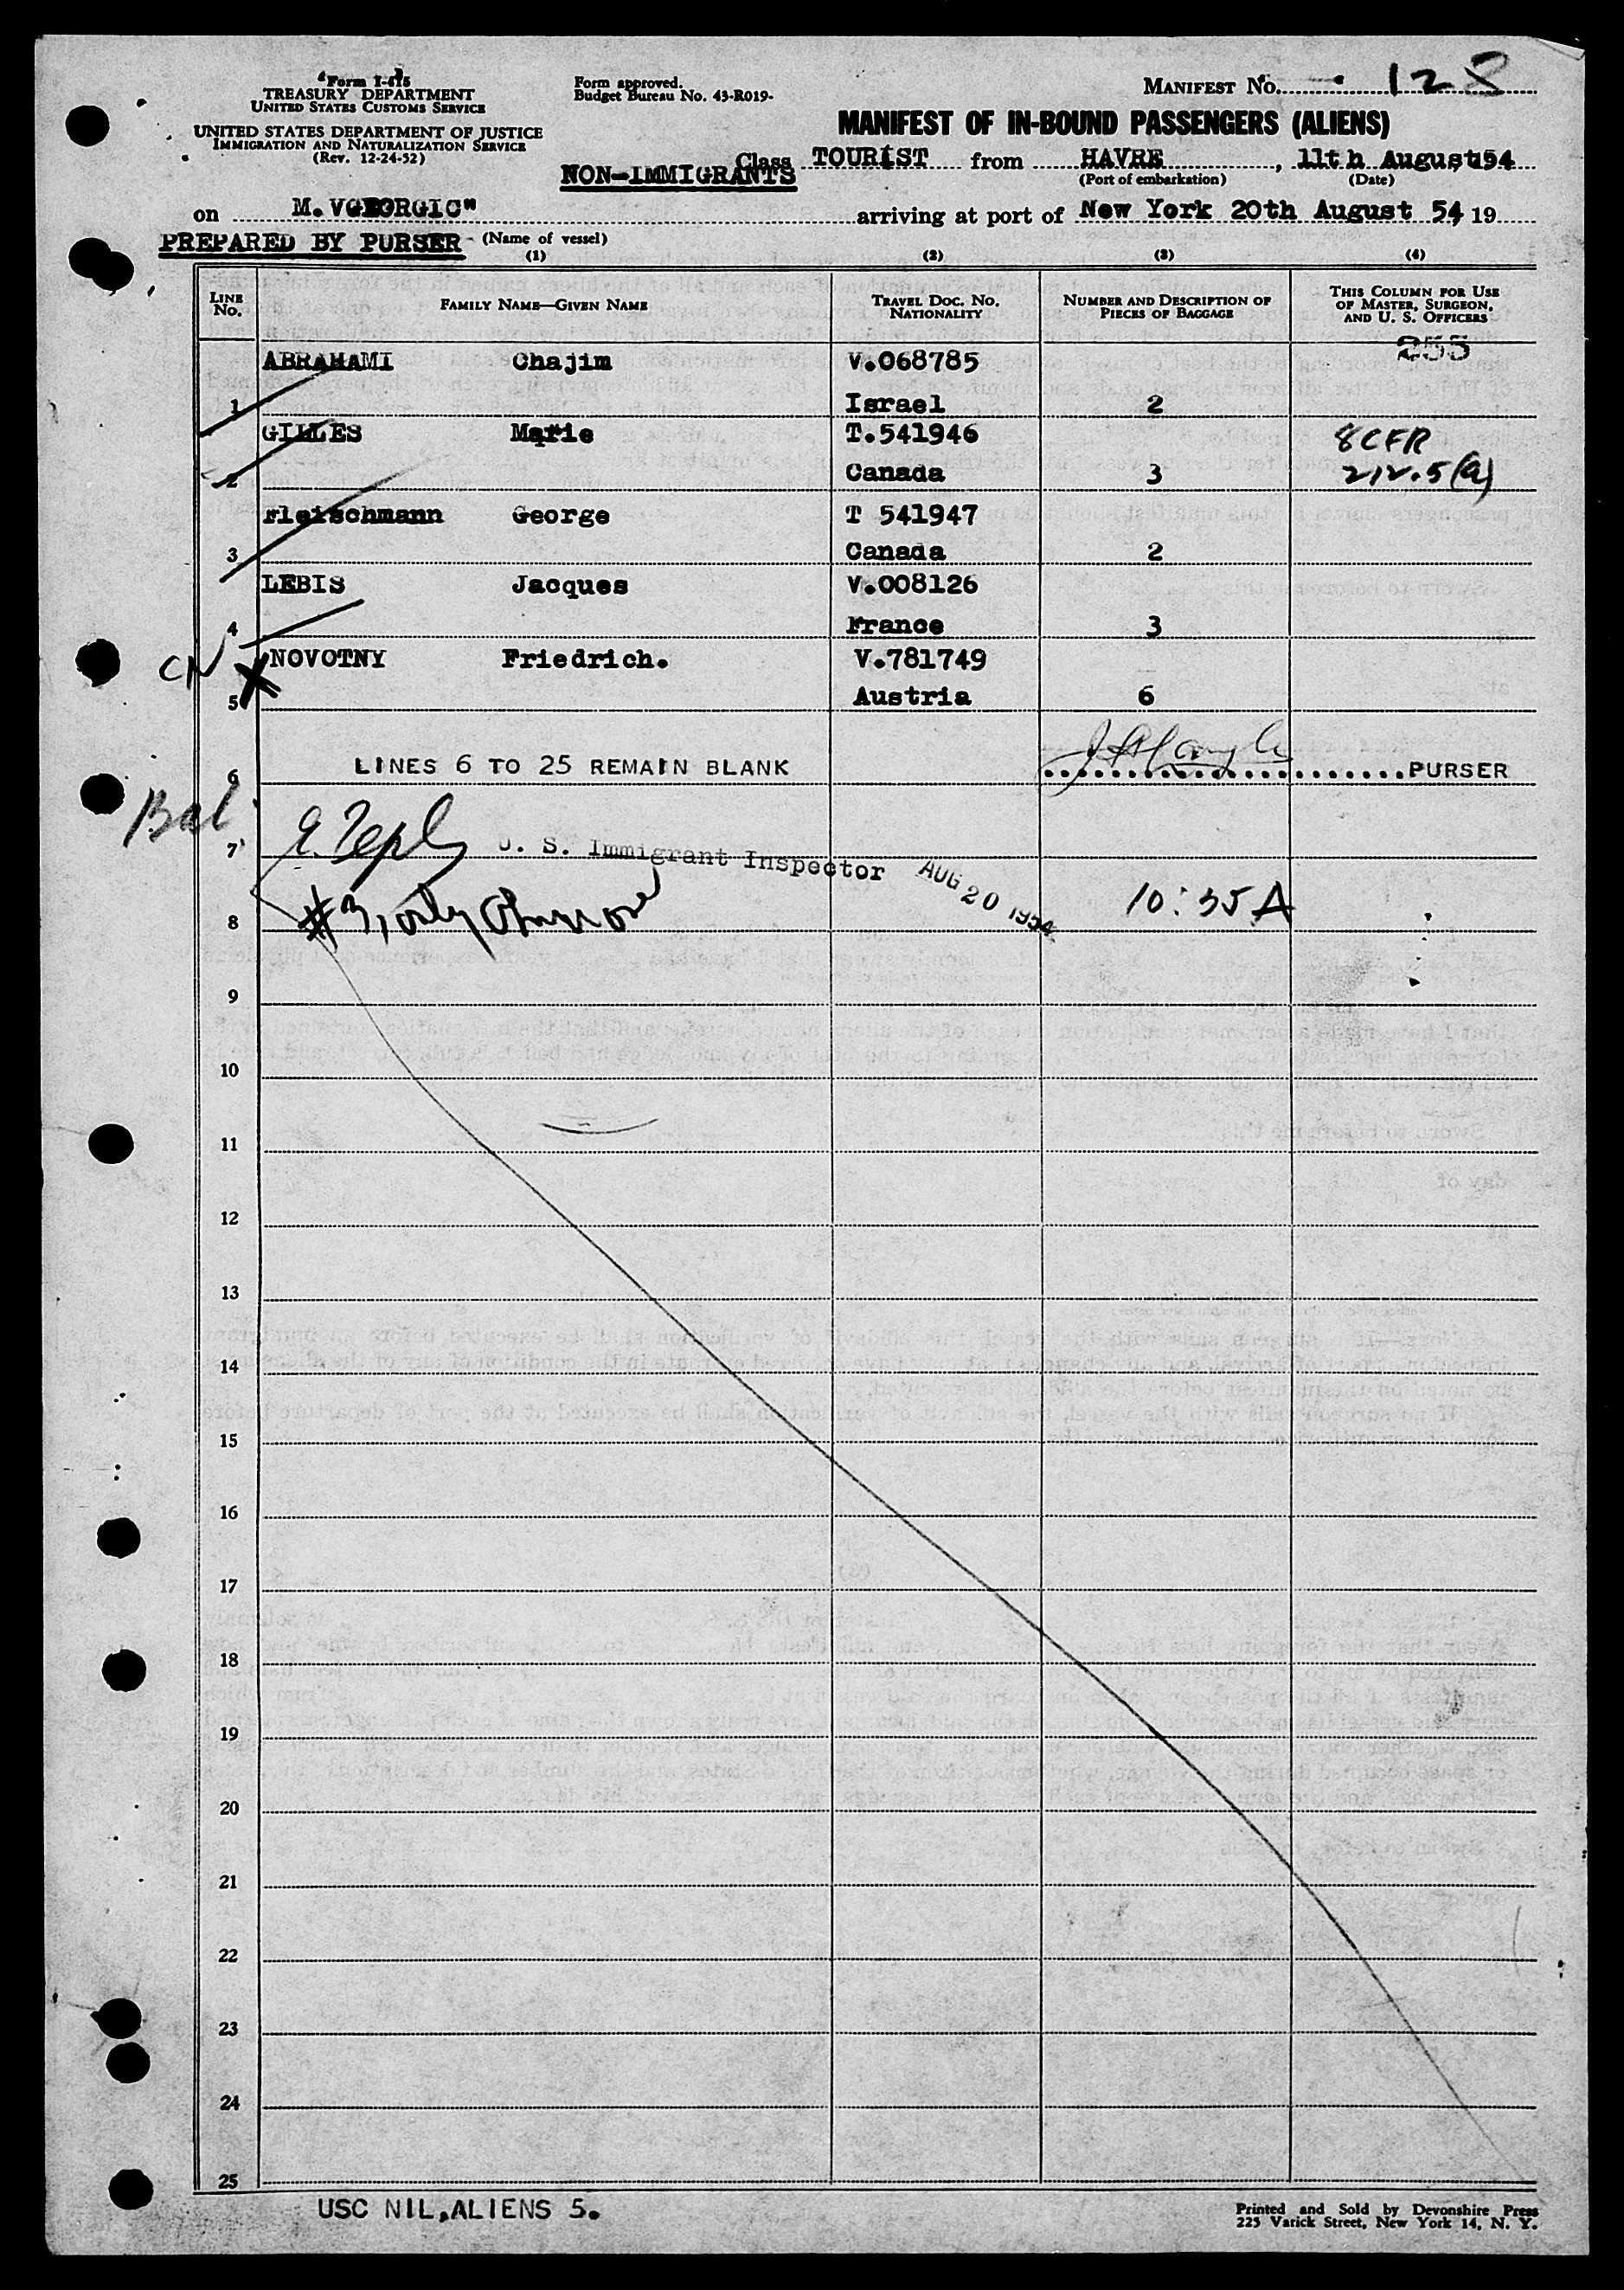 Form I-415
TREASURY DEPARTMENT
UNITED STATES CUSTOMS SERVICE
UNITED STATES DEPARTMENT OF JUSTICE
IMMIGRATION AND NATURALIZATION SERVICE
(Rev. 12-24-52)
Form approved.
Budget Bureau No. 43-R019-
MANIFEST No. 128
MANIFEST OF IN-BOUND PASSENGERS (ALIENS)
NON-IMMIGRANTS Class TOURIST from HAVRE, 11th August, 1954
(Port of embarkation) (Date)
on M.V GEORGIC" arriving at port of New York 20th August 54 19
PREPARED BY PURSER (Name of vessel)
(1) (2) (3) (4)
LINE No. FAMILY NAME—GIVEN NAME TRAVEL DOC. No. NATIONALITY NUMBER AND DESCRIPTION OF PIECES OF BAGGAGE THIS COLUMN FOR USE OF MASTER, SURGEON, AND U. S. OFFICERS
255
ABRAHAMI Chajim V.068785
1 Israel 2
GILLES Marie T.541946 8CFR
2 Canada 3 212.5(a)
Fleischmann George T 541947
3 Canada 2
LEBIS Jacques V.008126
4 France 3
CN X NOVOTNY Friedrich. V.781749
5 Austria 6
6 LINES 6 TO 25 REMAIN BLANK PURSER
Bal
7 U. S. Immigrant Inspector AUG 20 1954
8 #3, only 10:35A
9
10
11
12
13
14
15
16
17
18
19
20
21
22
23
24
25
USC NIL,ALIENS 5.
Printed and Sold by Devonshire Press
225 Varick Street, New York 14, N. Y.